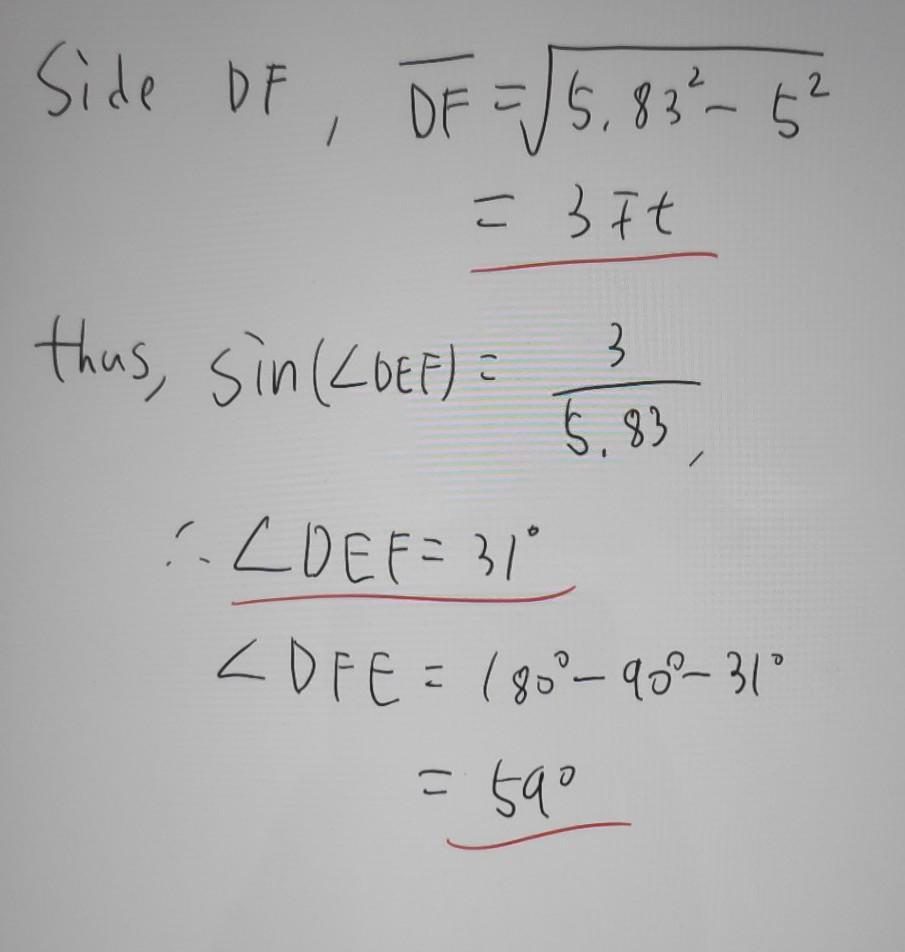 Side DF, DF = √5.83² - 5²
= 3 Ft
thus, sin(∠DEF) = 3/5.83,
∴ ∠DEF = 31°
∠DFE = 180° - 90° - 31°
= 59°